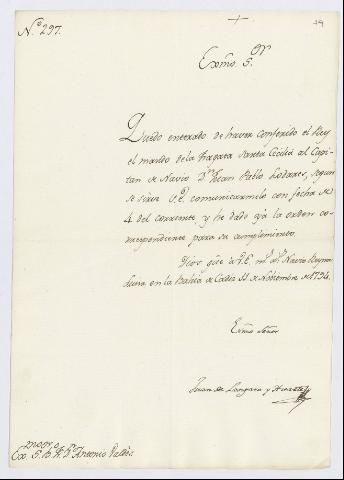 N.º 297.
Exmo. S.or
Quedo enterado de haver conferido el Rey
el mando de la Fragata Santa Cecilia al Capi-
tan de Navio D.n Juan Pablo Lodares, segun
se sirve V.E. comunicarmelo con fecha de
4 del corriente y he dado ya la orden co-
rrespondiente para su cumplimiento.
Dios gûe a V.E. m.s a.s Navio Reyna
Luisa en la Bahia de Cadiz 11 de Noviembre de 1794.
Exmo Señor
Juan de Langara y Huarte
Exmo. S.or B. F. D.n Antonio Valdés.